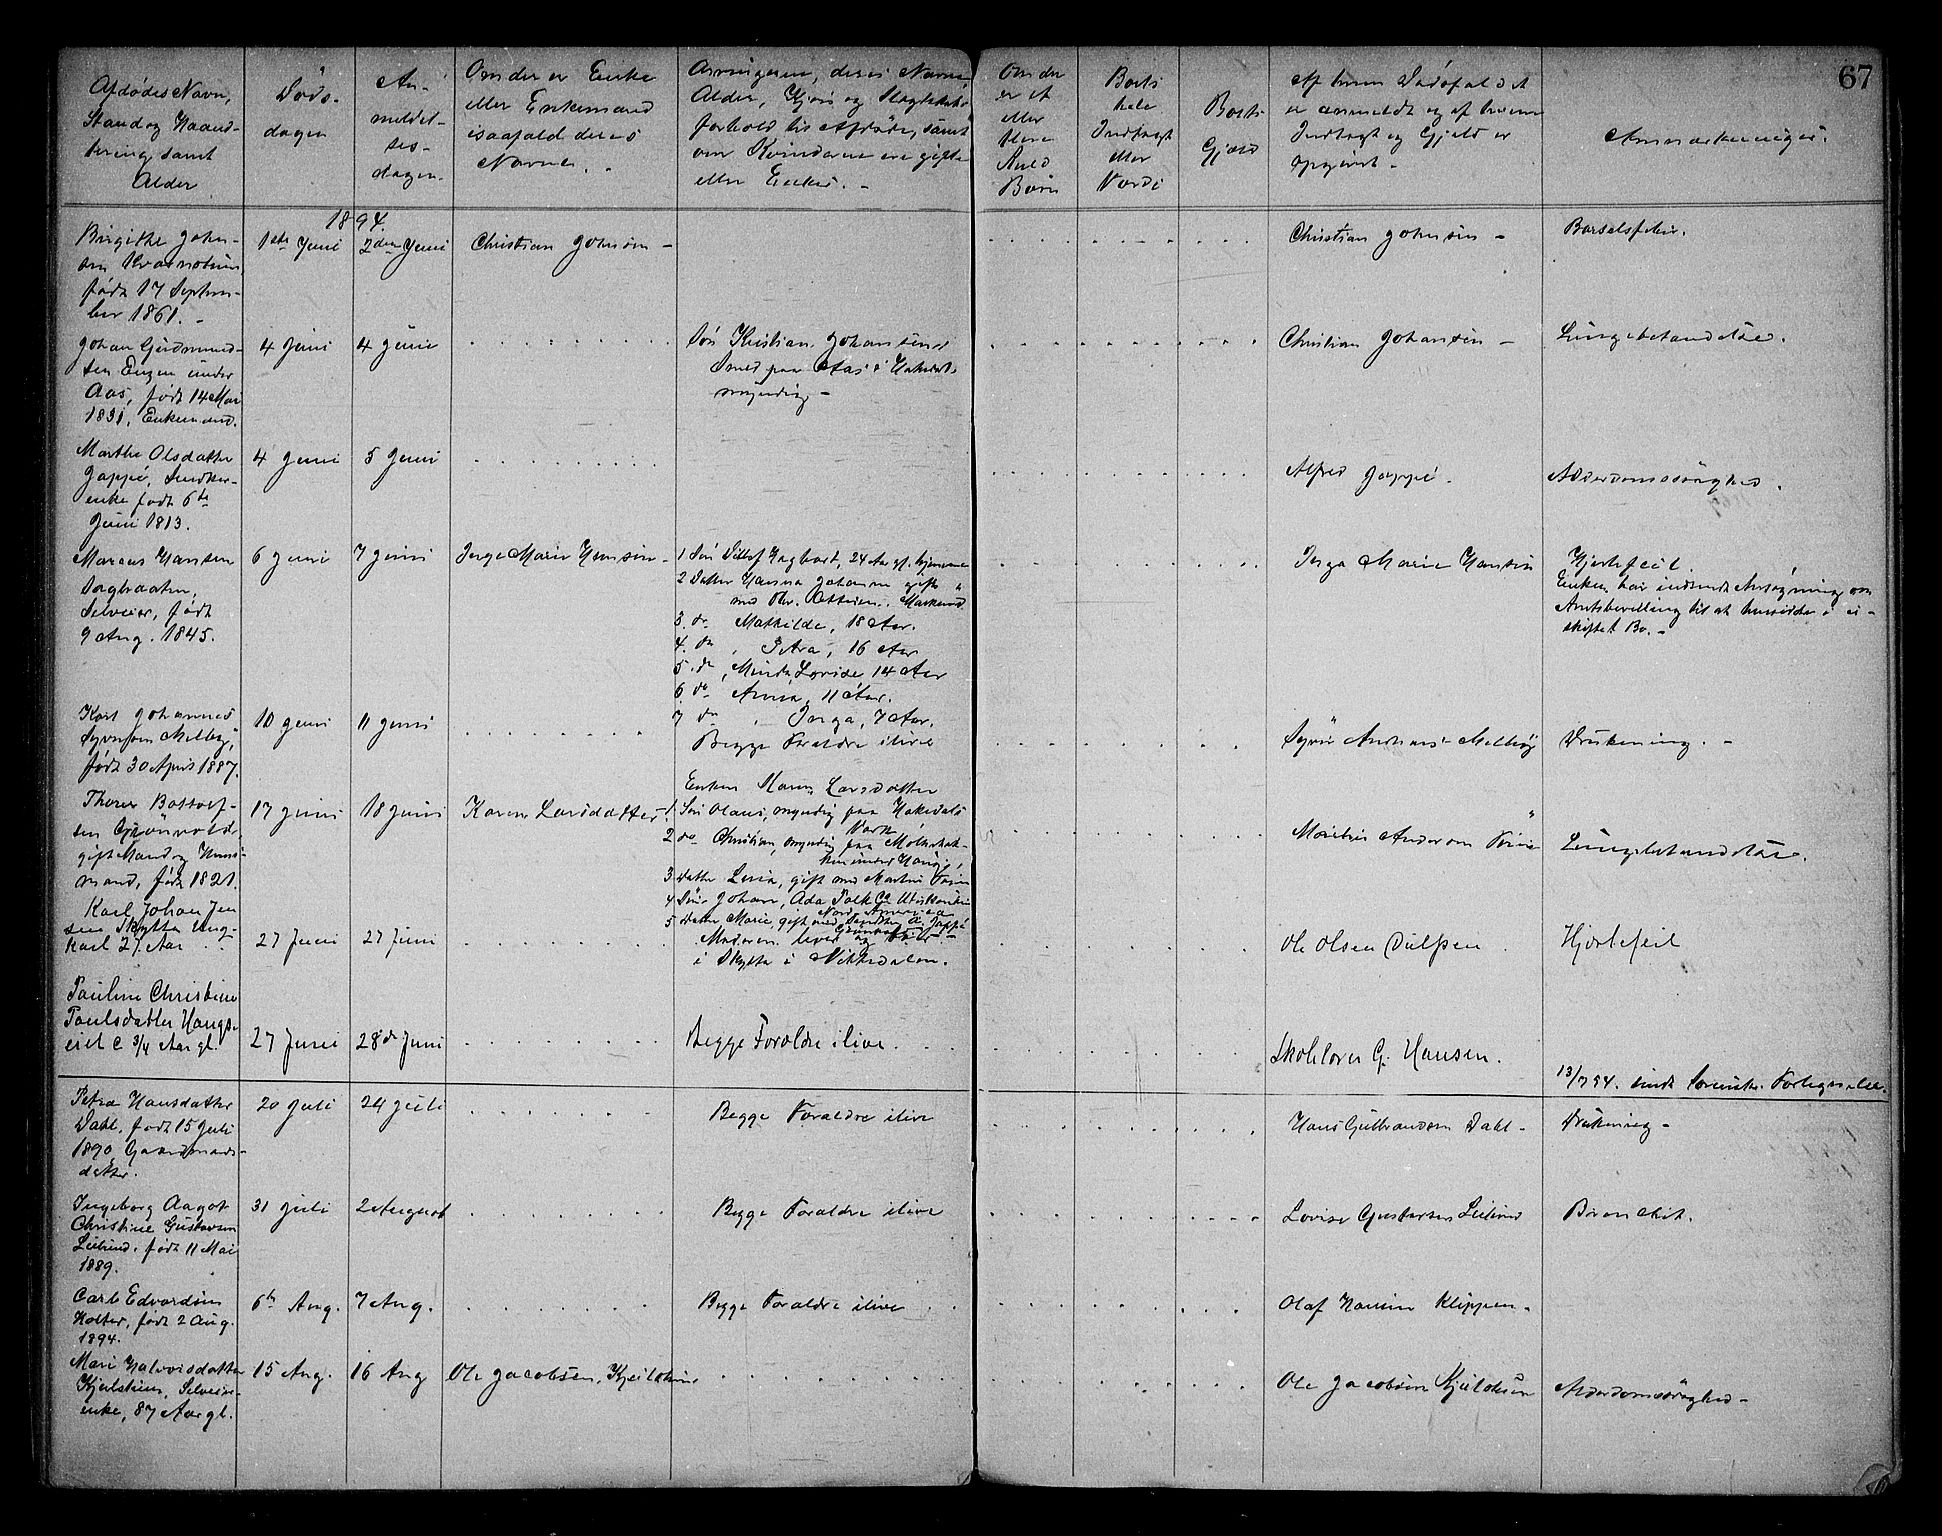 67
Afdødes Navn,
Stand og Haand-
tering, samt
Alder
Døds-
dagen
An-
meldel-
ses-
dagen.
Om der er Enke
eller Enkemand
isaafald deres
Navne.
Arvingerne, deres Navne
Alder, Kjøn og Slægtskabs
forhold til Afdøde, samt
om Kvinderne ere gifte
eller Enker. -
Om der
er et
eller
flere
Kuld
Børn
Boets
hele
Indtægt
eller
Værdi
Boets
Gjæld
Af hvem Dødsfaldet
er anmeldt og af hvem
Indtægt og Gjæld er
opgivet -
Anmærkninger.
1894.
Birgithe John-
sen
født 17 Septem-
ber 1861. -
1ste Juni
2den Juni
Christian Johnsen -
Christian Johnsen -
Barselfeber.
Johan Gudmund-
sen Engen under
Aas, født 14 Mai
1831, Enkemand.
4 Juni
4 Juni
Søn Kristian Johansen
Smed paa Aas i Hakedal
myndig -
Christian Johansen -
Lungebetændelse.
Marthe Olsdatter
Jappé, Snedker-
enke født 6te
Juni 1813.
4 Juni
5 Juni
Alfred Jappé.
Alderdomssvaghed.
Marcus Hansen
Selveier, født
9 Aug. 1845.
6 Juni
7 Juni
Inge Marie Hansen -
1 Søn Ditlef Hagbart, 24 Aar gl. hjemme
2 Datter Hanna Johanne gift
med Chr.
3. do Mathilde, 18 Aar.
4. do, Petra, 16 Aar
5. do, Minda Lovise 14 Aar
6. do Anna, 11 Aar.
7 do, Inga, 7 Aar.
Inga Marie Hansen
Hjertefeil.
Enken har indsendt Ansøgning om
Amtsbevilling til at hensidde i u-
skiftet Bo. -
Karl Johannes
Syversen Melby,
født 30 April 1887.
10 Juni
11 Juni
Begge Forældre ilive
Syver Andreas Melby
Drukning. -
Thorer Bottolf-
sen
gift Mand og Huus-
mand, født 1821.
17 Juni
18 Juni
Karen Larsdatter
Enken Karen Larsdatter
1. Søn Olaus, myndig paa Hakedals
Værk
2 do Christian, myndig paa
3 Datter Lina, gift med Martin
4 Søn Johan, Ada Polk Co
Nord Amerika
5 Datter Marie gift med Snedker A. Jappé
Andersen
Lungebetændelse.
Karl Johan Jen
sen Skytta Ung-
karl 27 Aar
27 Juni
27 Juni
Moderen lever og
i Skytta i Nittedalen.
Ole Olsen
Hjertefeil
Pauline Christine
Paulsdatter Haugs-
eiet 3/4 Aar gl.
27 Juni
28de Juni
Begge Forældre ilive.
Skolelærer G. Hansen.
13/7 94. sendt Sorenskr. Fortegnelse.
Petra Hansdatter
Dahl, født 15 Juli
1890, Gaardmands-
datter.
20 Juli
24 Juli
Begge Forældre ilive
Hans Gulbrandsen Dahl -
Drukning -
Ingeborg Aagot
Christine Gustavsen
født 11 Mai
1889.
31 Juli
2 August
Begge Forældre ilive
Lovise Gustavsen
Bronchit.
Carl Edvardsen
Holter, født 2 Aug.
1894.
6te Aug.
7 Aug.
Begge Forældre ilive
Olaf Hansen Klippen -
Mari Halvorsdatter
Kjeilsteien, Selveier-
enke, 87 Aar gl.
15 Aug.
16 Aug
Ole Jacobsen,
Ole Jacobsen
Alderdomssvaghed -